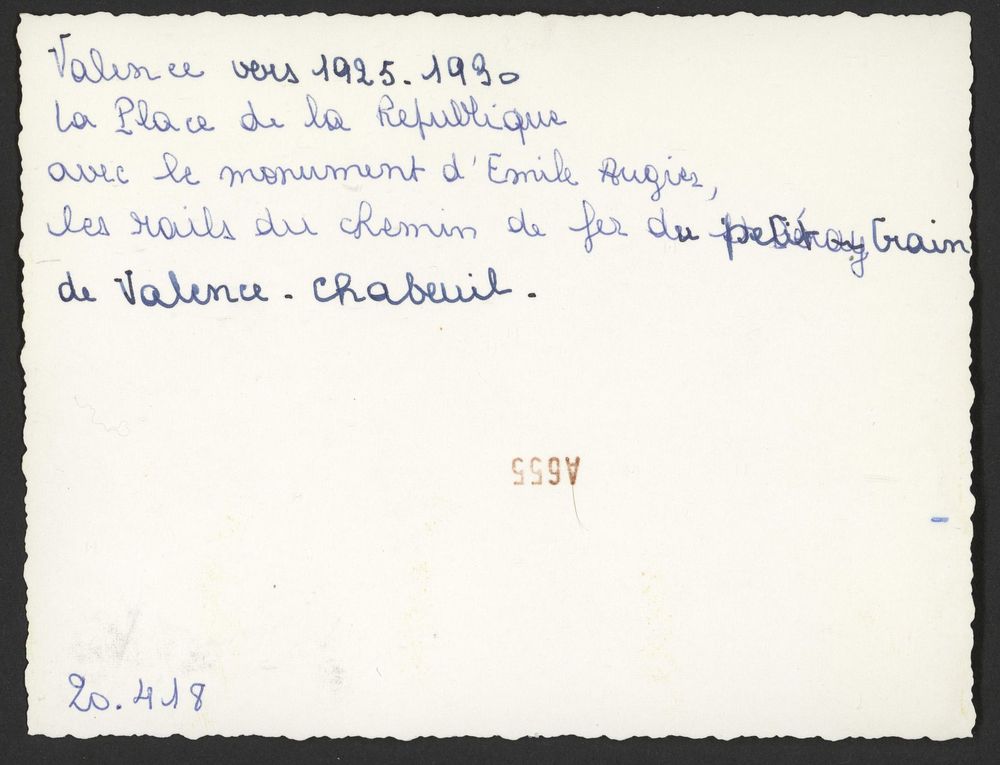 Valence vers 1925. 1930
La Place de la Republique
avec le monument d'Emile Augier,
les rails du chemin de fer du train
de Valence - Chabeuil.
A655
20.418